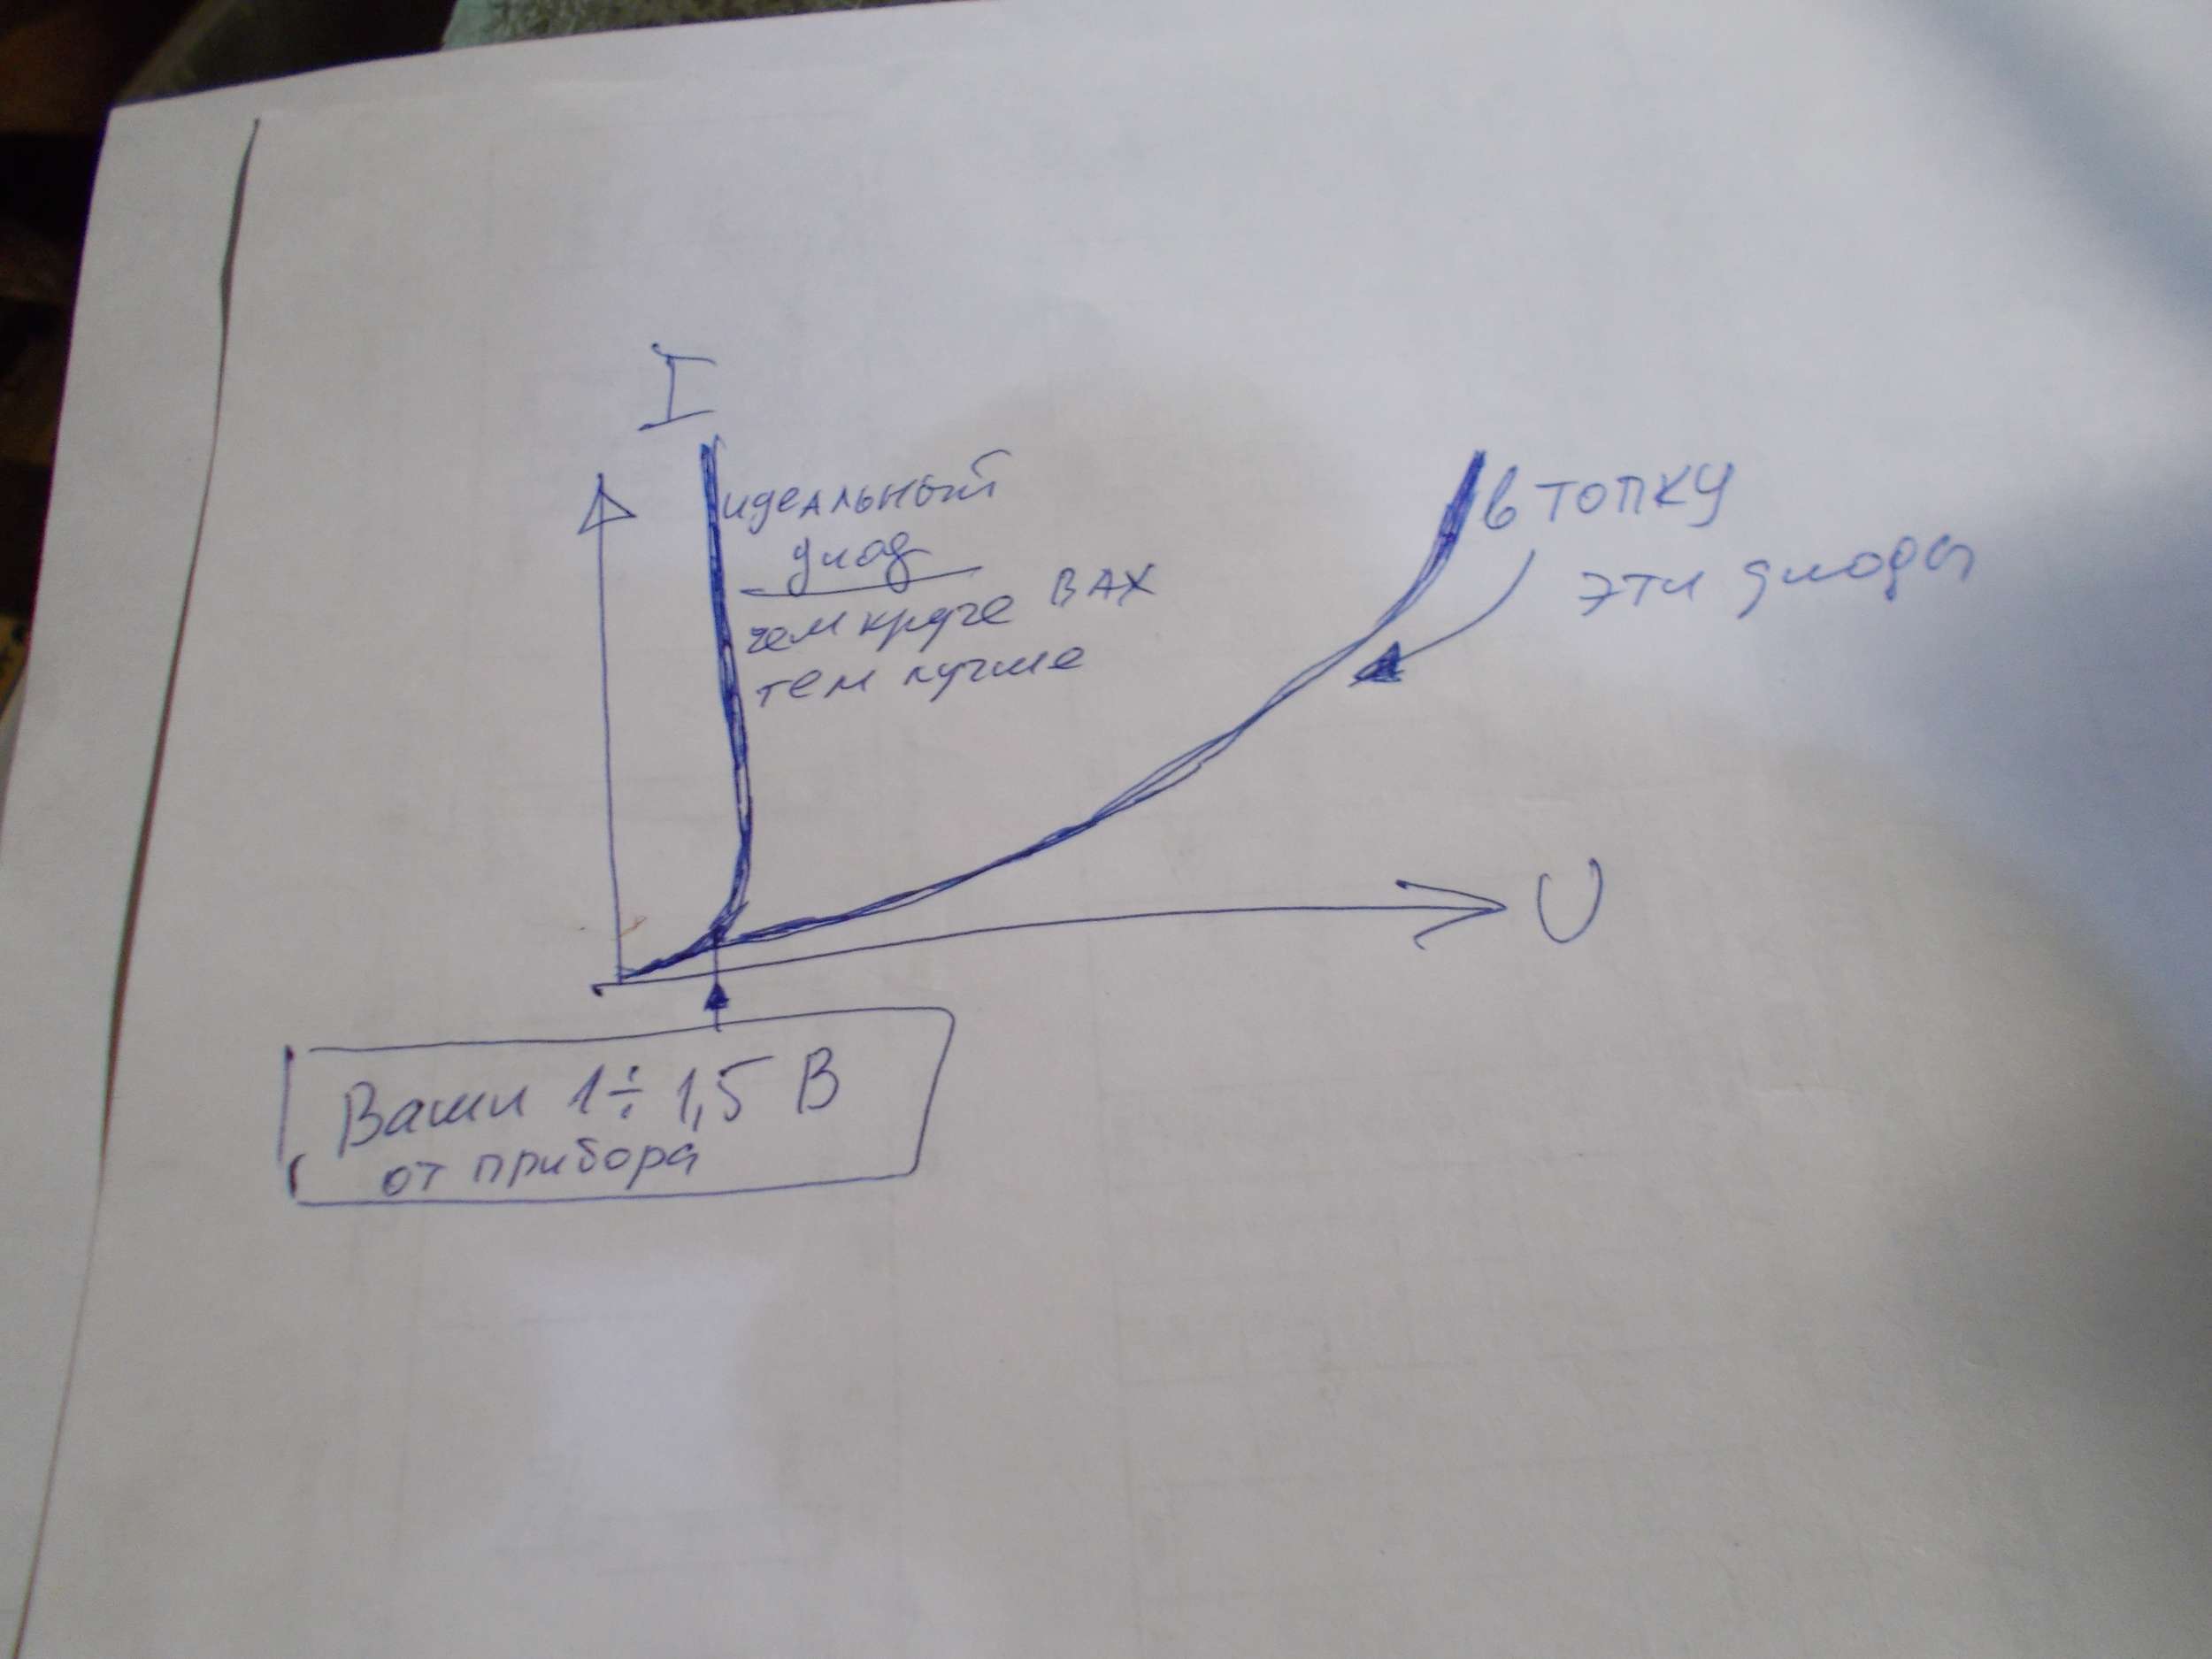 I
идеальный
диод
чем круче ВАХ
тем лучше
в топку
эти диоды
U
Ваши 1÷1,5 В
от прибора